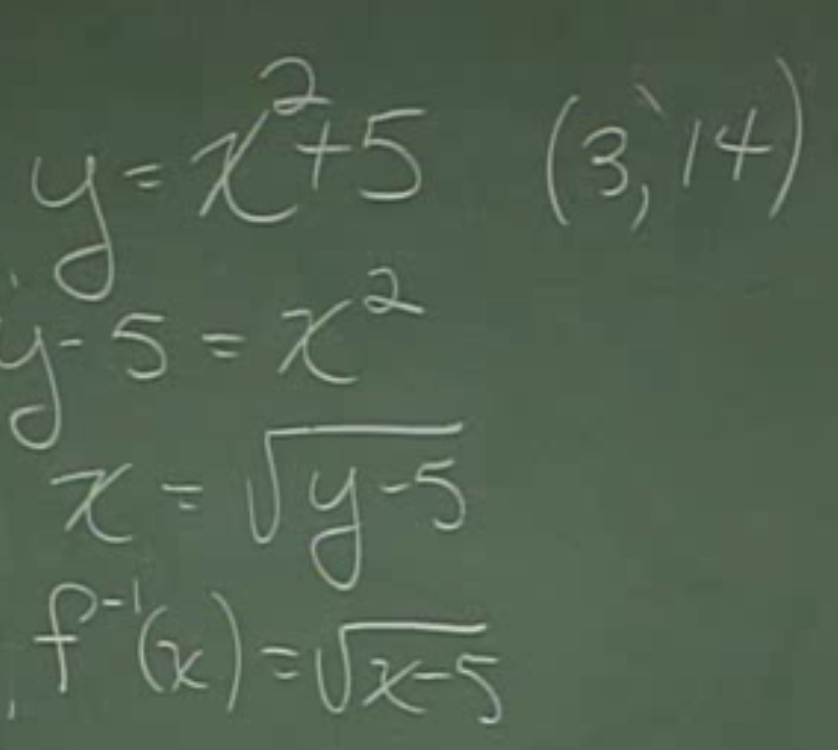 y = x² + 5 (3, 14)
y - 5 = x²
x = √(y - 5)
f⁻¹(x) = √(x - 5)